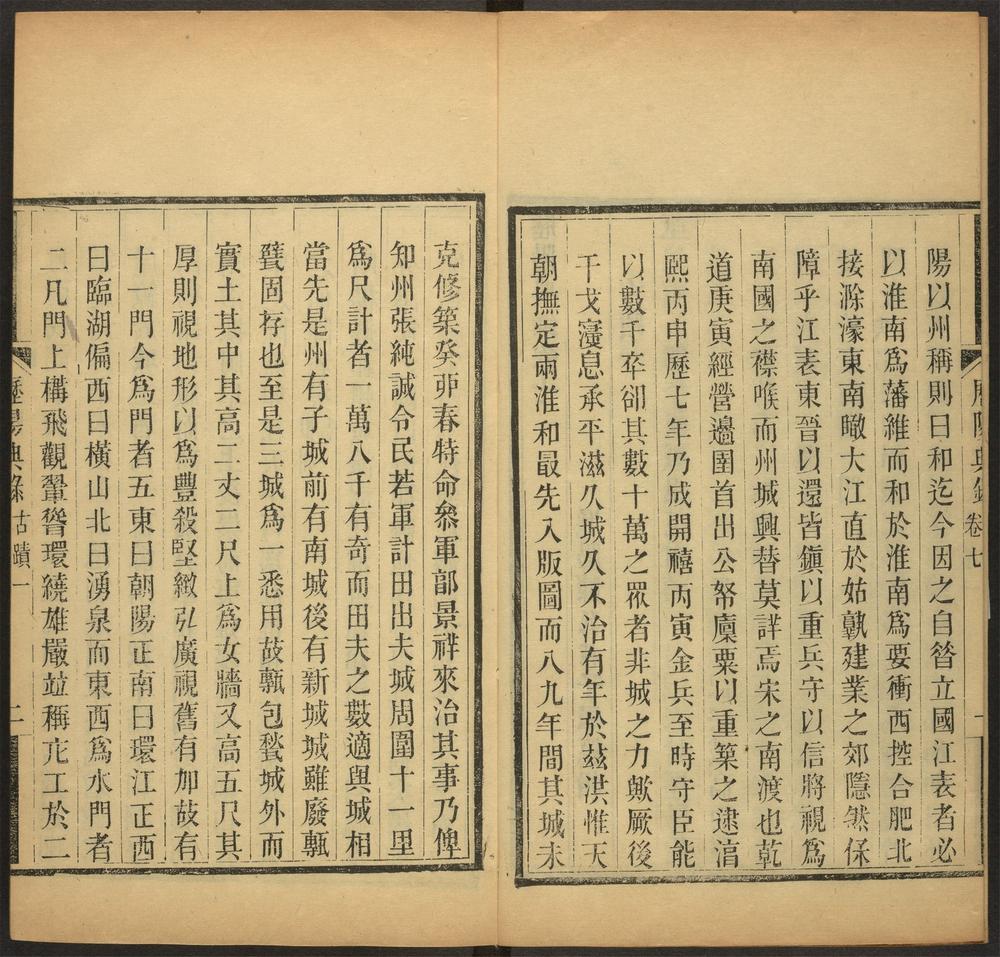 陽以州稱則曰和迄今因之自晉立國江表者必
以淮南爲藩維而和於淮南爲要衝西控合肥北
接滁濠東南瞰大江直於姑孰建業之郊隱然保
障乎江表東晉以還皆鎭以重兵守以信將視爲
南國之襟喉而州城興替莫詳焉宋之南渡也乾
道庚寅經營邊圉首出公帑廩粟以重築之逮淳
熙丙申歷七年乃成開禧丙寅金兵至時守臣能
以數千卒卻其數十萬之眾者非城之力歟厥後
干戈寖息承平滋久城久不治有年於茲洪惟天
朝撫定兩淮和最先入版圖而八九年間其城未
歷陽典錄 卷七 一
克修築癸卯春特命叅軍郭景祥來治其事乃俾
知州張純誠令民若軍計田出夫城周圍十一里
爲尺計者一萬八千有奇而田夫之數適與城相
當先是州有子城前有南城後有新城城雖廢甎
甃固存也至是三城爲一悉用故甎包甃城外而
實土其中其高二丈二尺上爲女牆又高五尺其
厚則視地形以爲豐殺堅緻弘廣視舊有加故有
十一門今爲門者五東曰朝陽正南曰環江正西
曰臨湖偏西曰橫山北曰湧泉而東西爲水門者
二凡門上構飛觀翬聳環繞雄嚴竝稱庀工於二
歷陽典錄 古蹟一 二